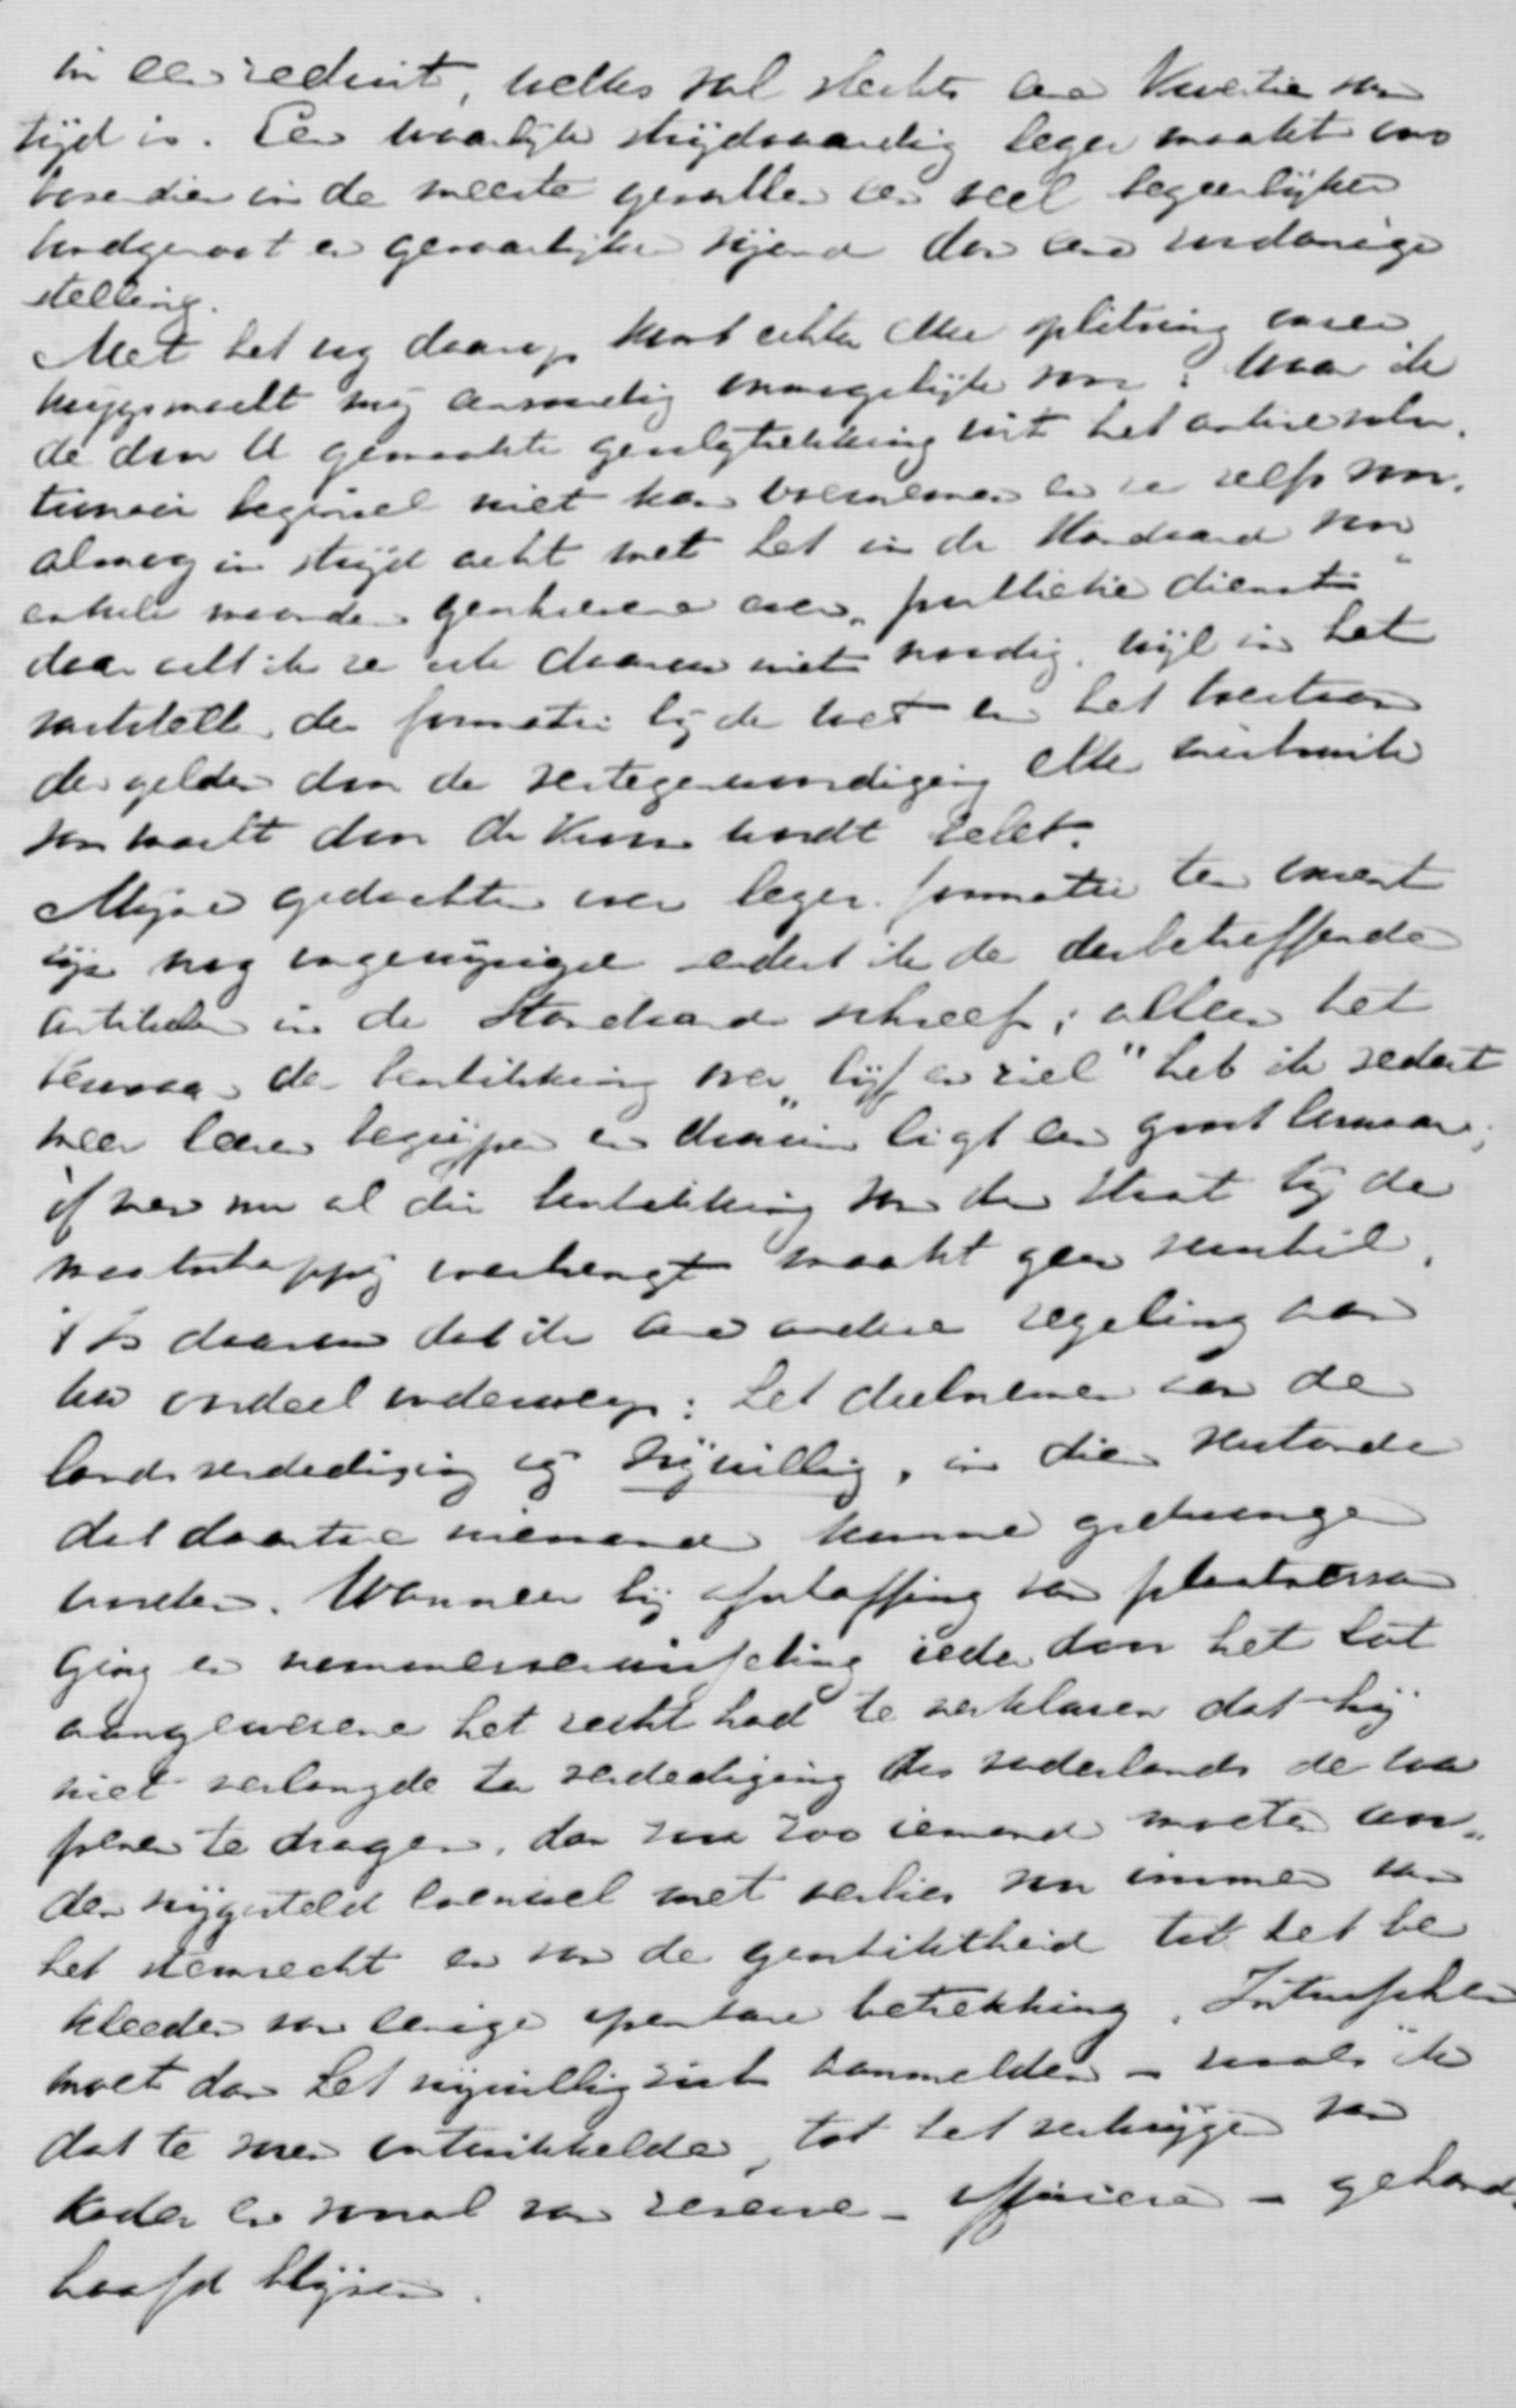 in een reduit, welks val slechts eene kwestie van
tijd is. Een waarlijk strijdvaardig leger maakt ons
bovendien in de meeste gevallen een veel begeerlijker
bondgenoot en gevaarlijker vijand dan eene zoodanige
stelling.
Met het oog daarop komt echter elke splitsing onzer
krijgsmacht mij onraadig onmogelijk voor; waar ik
de door U gemaakte gevolgtrekking uit het antirevolu-
tionair beginsel niet kan overnemen en ze zelfs voor-
alsnog in strijd acht met het in de Standaard voor
enkele maanden geschrevene over "publieke dienst"
daar acht ik ze ook daarom niet noodig, wijl in het
vaststellen der formatie bij de wet en het toestaan
der gelden door de vertegenwoordiging elke misbruik
van macht door de Kroon wordt belet.
Mijne gedachten over leger-formatie ten onzent
zijn nog ongewijzigd sedert ik de desbetreffende
artikelen in de Standaard schreef; alleen het
bezwaar der beschikking over "lijf en ziel" heb ik sedert
meer leeren begrijpen en daarin ligt een groot bezwaar;
of men nu al die beschikking van den Staat bij de
maatschappij overbrengt maakt geen verschil.
't Is daarom dat ik eene andere regeling aan
uw oordeel onderwerp: het deelnemen aan de
landsverdediging zij vrijwillig, in dien verstande
dat daartoe niemand kunne gedwongen
worden. Wanneer bij afschaffing van plaatsvervan
ging en nummerverwisseling ieder door het lot
aangewezene het recht had te verklaren dat hij
niet verlangde ter verdediging des vaderlands de wa
penen te dragen, dan zou zoo iemand moeten wor-
den vrijgesteld evenwel met verlies voor immer van
het stemrecht en van de geschiktheid tot het be
kleeden van eenige openbare betrekking. Intusschen
moet dan het vrijwillig zich aanmelden – zooals ik
dat te voren ontwikkelde, tot het verkrijgen van
kader en vooral van reserve-officieren – gehand-
haafd blijven.